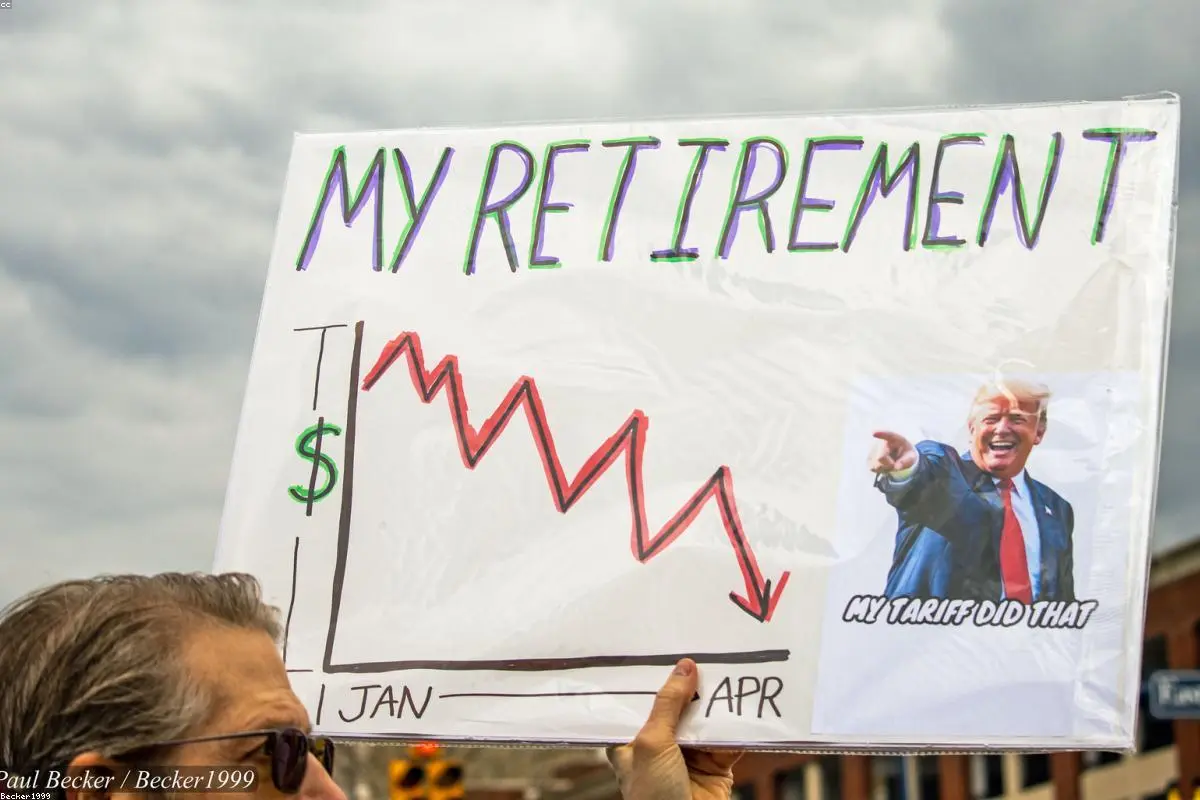 cc
MY RETIREMENT
$
MY TARIFF DID THAT
JAN APR
Paul Becker / Becker1999
Becker1999